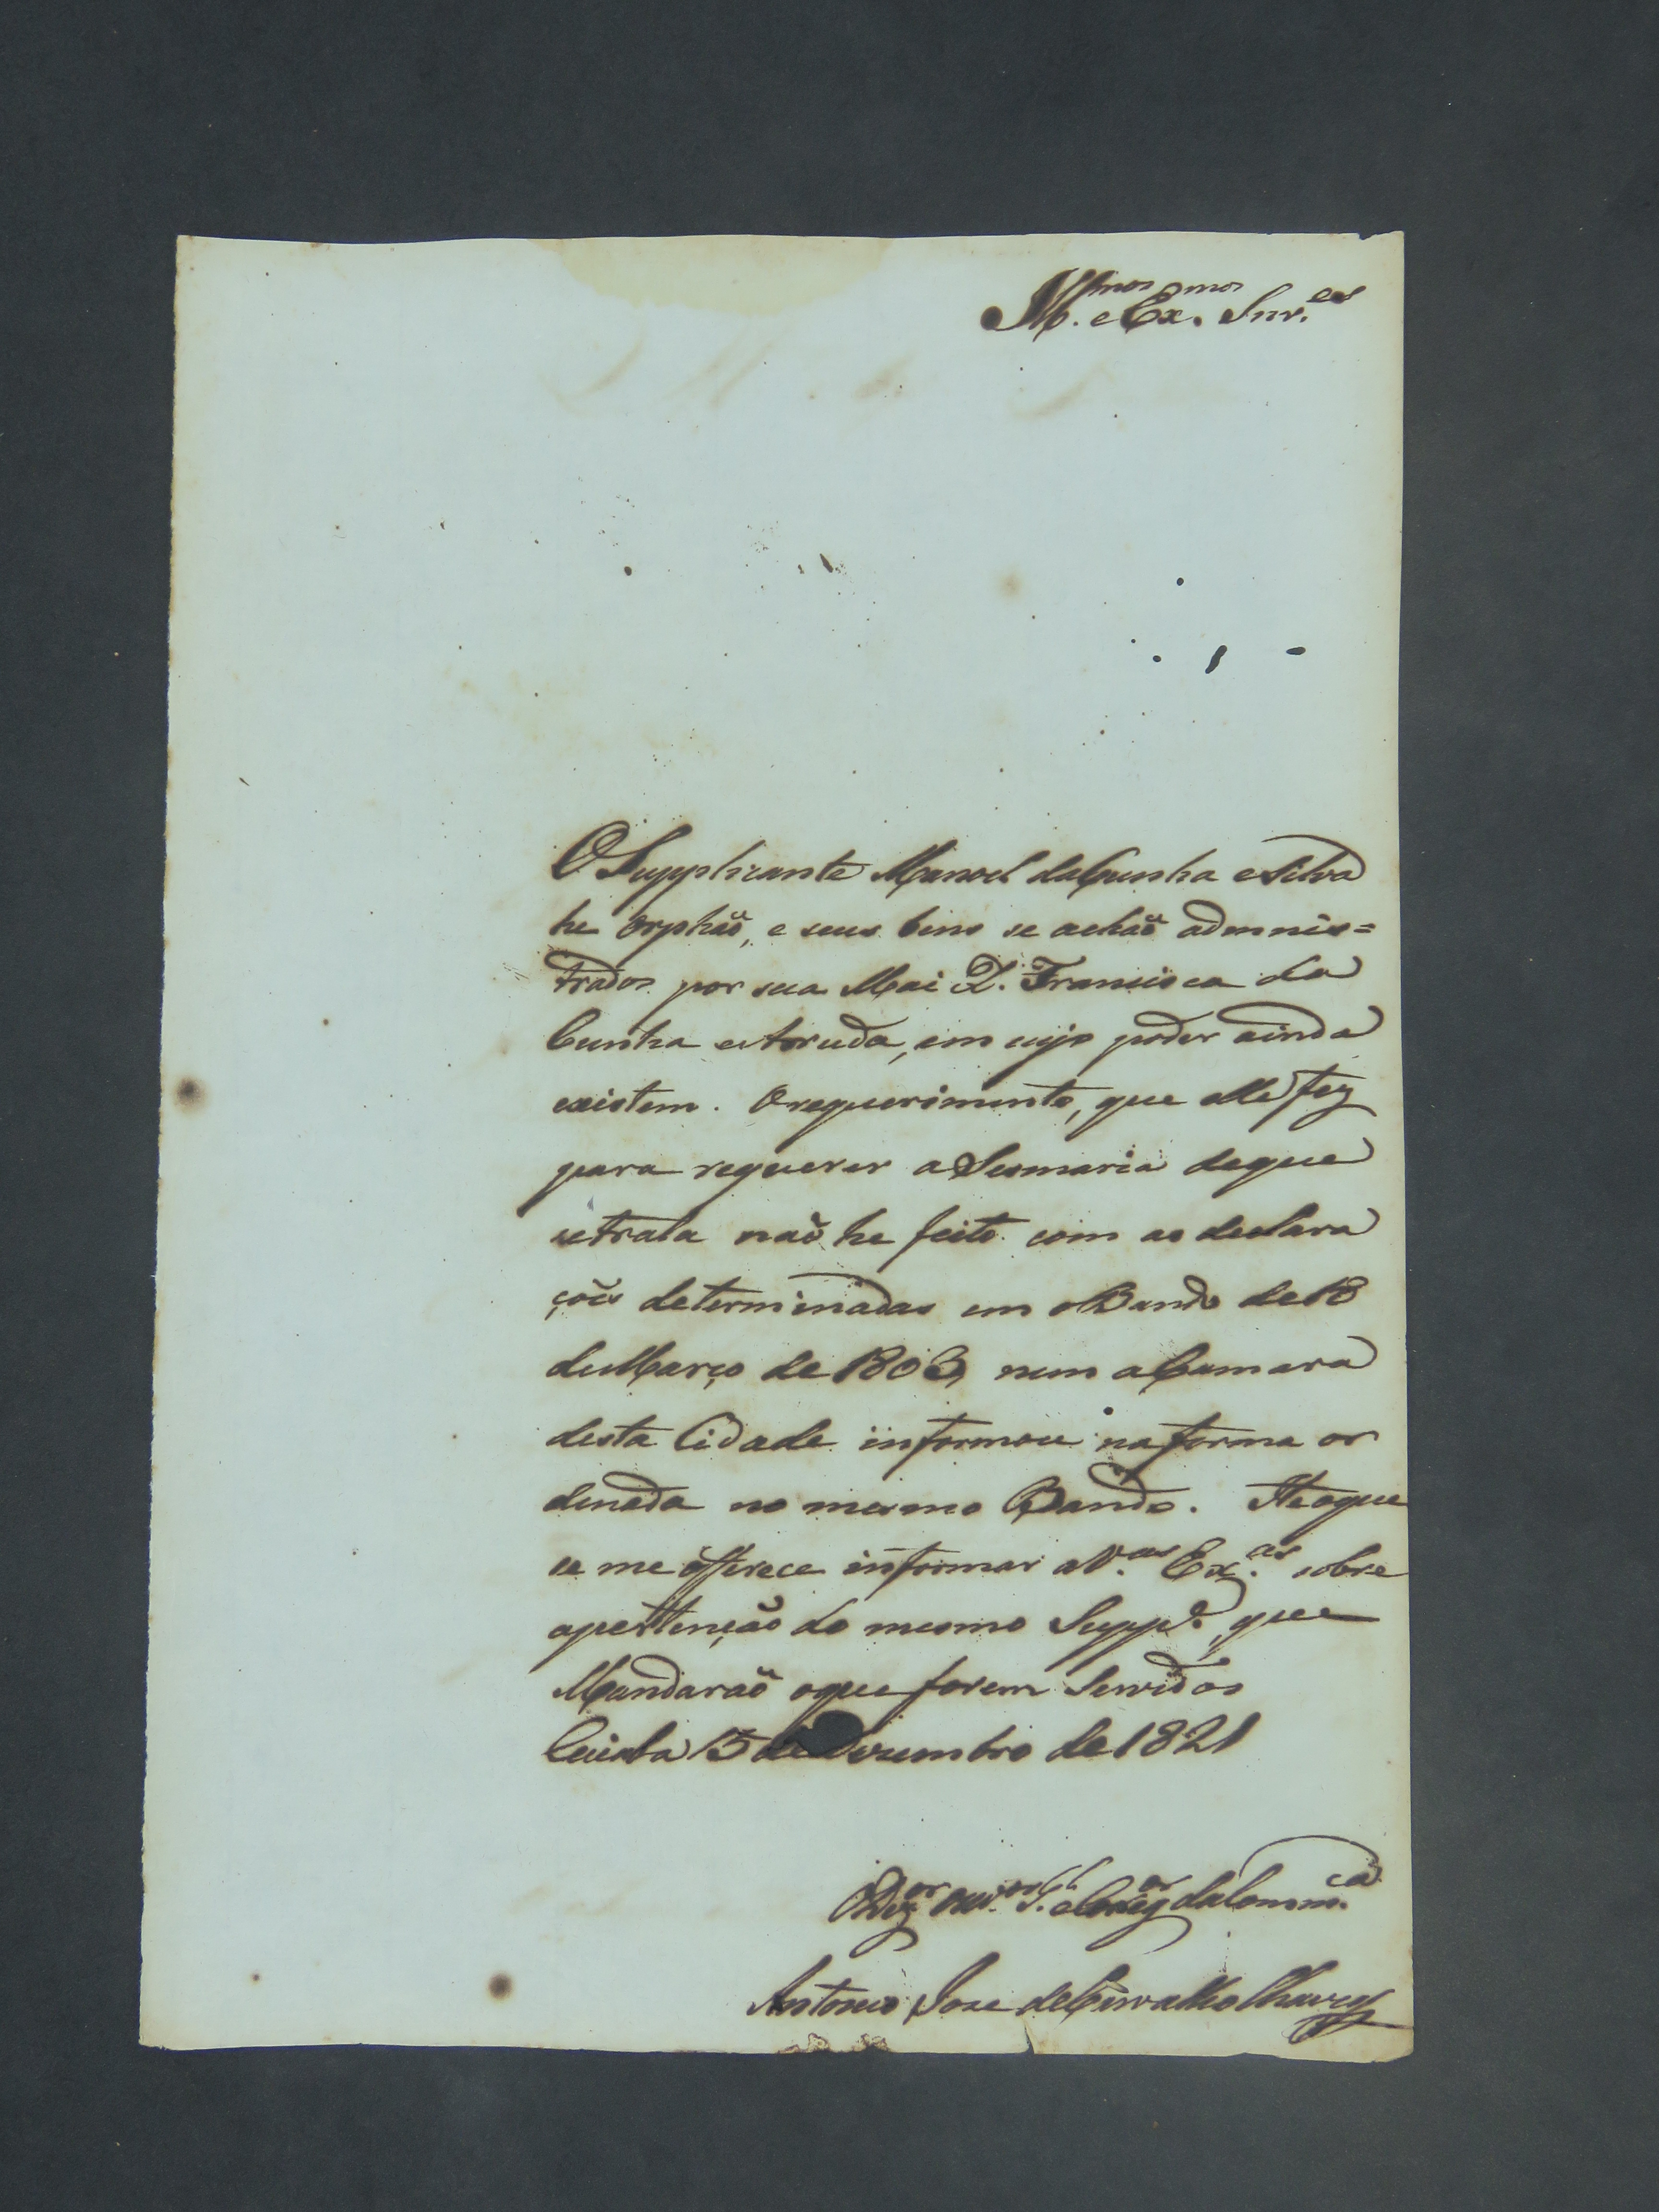 Ill.mos e Ex.mos Snr.es
O Supplicante Manoel da Cunha e Silva
he orphaõ, e seus bens se achaõ adminis=
trados por sua Mai D. Francisca da
Cunha e Arruda, em cujo poder ainda
existem. O requerimento, que elle fez
para requerer a Sesmaria de que
se trata naõ he feito com as declara
çoẽs determinadas em o Bando de 18
de Março de 1803, nem a Camara
desta Cidade informou na forma or
denada no mesmo Bando. He o que
se me offerece informar a V.as Ex.as sobre
apertençaõ do mesmo Supp.e, que
Mandaraõ o que forem Servidos
Cuiaba 15 de de 1821
Ouv.or G.l e Correg.or da Com.ca
Antonio Jose de Carvalho Chaves